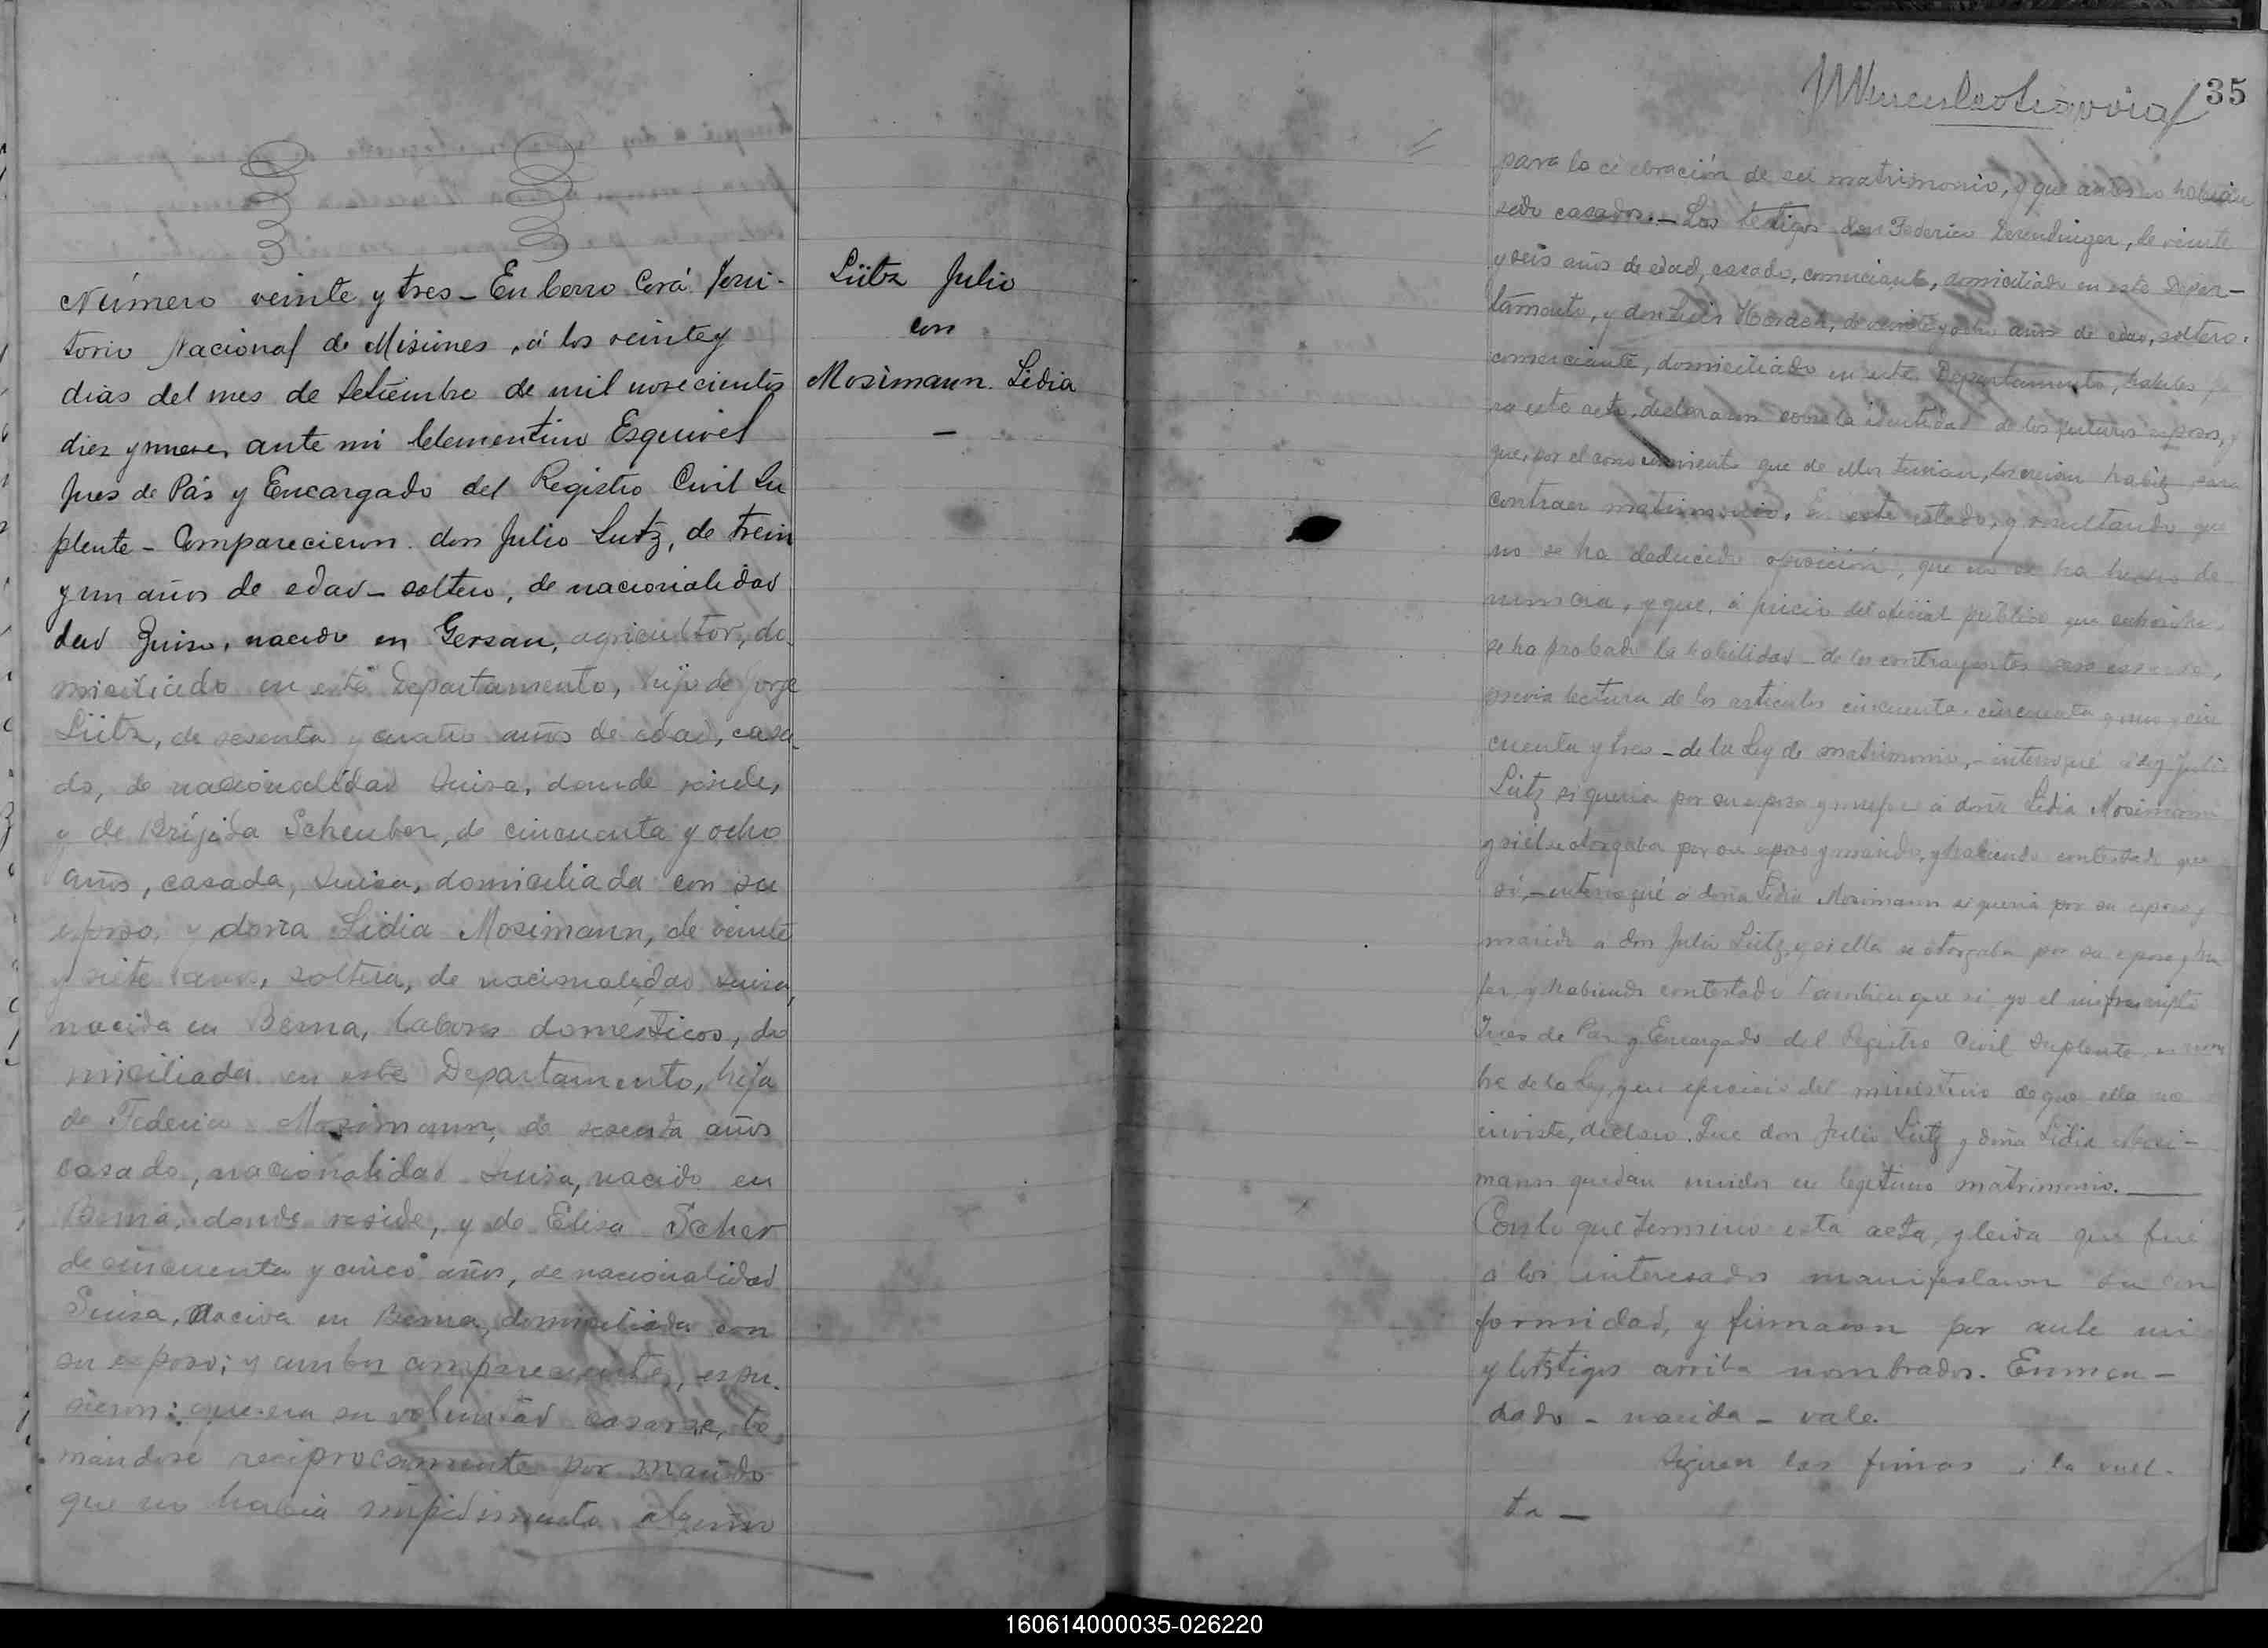 Número veinte y tres - En Cerro Corá Terri-
torio Nacional de Misiones, á los veinte y
dias del mes de Setiembre de mil novecientos
diez y nueve, ante mi Clementino Esquivel
Jues de Pás y Encargado del Registro Civil Su
plente - Comparecieron don Julio Lutz, de trein
y un años de edad - soltero, de nacionalidad
dad Zuiso, nacido en Gersau, agricultor, do-
miciliado en este Departamento, hijo de Jorge
Lütz, de sesenta y cuatro años de edad, casa-
do, de nacionalidad Suisa, donde reside,
y de Brijida Scheuber, de cincuenta y ocho
años, casada, suisa, domiciliada con su
esposo, y doña Lidia Mosimann, de veinte
y siete años, soltera, de nacionalidad suisa,
nacida en Berna, labores domésticos, do
miciliada en este Departamento, hija
de Federico Mosimann, de sesenta años
casado, nacionalidad Suisa, nacido en
Berna, donde reside, y de Elisa Scher
de cincuenta y cinco años, de nacionalidad
Suisa, nacida en Berna, domiciliada con
su esposo; y ambos comparecientes, espu-
sieron: que era su voluntad casarse, to
mándose reciprocamente por marido
que no habia impedimento alguno
Lütz Julio
con
Mosimann Lidia
35
para la celebración de su matrimonio, y que antes no habian
sido casados. - Los testigos don Federico Derendinger, de veinte
y seis años de edad, casado, comerciante, domiciliado en este Depar-
tamento, y don Luis de veinte y ocho años de edad, soltero,
comerciante, domiciliado en este Departamento, habiles pa
ra este acto, declararon sobre la identidad de los futuros esposos, y
que, por el conocimiento que de ellos tenian, los creian habiles para
contraer matrimonio. En este estado, y resultando que
no se ha deducido oposición, que no se ha hecho de
nuncia, y que, á juicio del oficial público que suscribe
se ha probado la habilidad de los contrayentes para casarse,
previa lectura de los articulos cincuenta, cincuenta y uno y cin
cuenta y tres - de la Ley de matrimonio, - interroqué á don Julio
Lütz si queria por su esposa y mujer á doña Lidia Mosimann
y si él se otorgaba por su esposo y marido, y habiendo contestado que
si, - interroqué á doña Lidia Mosimann si queria por su esposo y
marido á don Julio Lütz, y si ella se otorgaba por su esposa y mu
jer, y habiendo contestado tambien que si, yo el infrascripto
Jues de Paz y Encargado del Registro Civil Suplente, en nom
bre de la Ley, y en ejercicio del ministerio de que ella me
inviste, declaro. Que don Julio Lütz y doña Lidia Mosi-
mann quedan unidos en legitimo matrimonio.
Con lo que termino esta acta, y leida que fué
á los interesados manifestaron su con
formidad, y firmaron por ante mi
y los testigos arriba nombrados. Enmen-
dado - nacida - vale.
Siguen las firmas á la vuel-
ta -
160614000035-026220